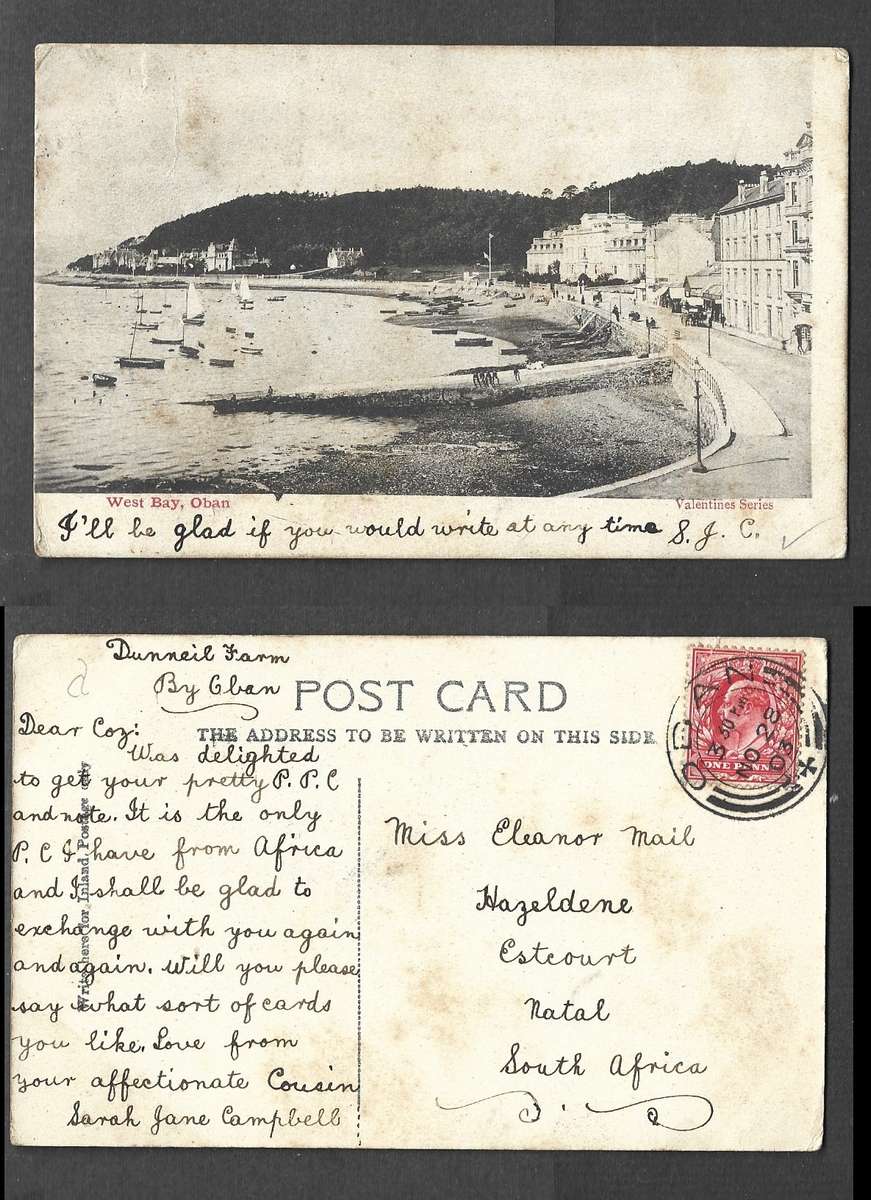 West Bay, Oban
Valentines Series
I'll be glad if you would write at any time S. J. C.
Dunneil Farm
By Oban
POST CARD
THE ADDRESS TO BE WRITTEN ON THIS SIDE
Dear Coz:
Was delighted
to get your pretty P. P. C
and note. It is the only
P. C I have from Africa
and I shall be glad to
exchange with you again
and again. Will you please
say what sort of cards
you like. Love from
your affectionate Cousin
Sarah Jane Campbell
Write here for Inland Postage only
OBAN
3 30 PM
NO 28
03
ONE PENNY
Miss Eleanor Mail
Hazeldene
Estcourt
Natal
South Africa